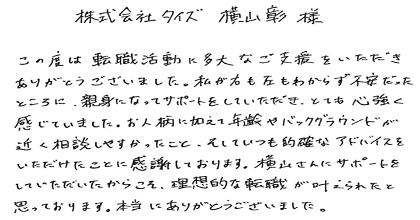 株式会社タイズ 横山彰 様
この度は転職活動に多大なご支援をいただき
ありがとうございました。私が右も左もわからず不安だった
ところに、親身になってサポートをしていただき、とても心強く
感じていました。お人柄に加えて年齢やバックグラウンドが
近く相談しやすかったこと、そしていつも的確なアドバイスを
いただけたことに感謝しております。横山さんにサポートを
していただいたからこそ、理想的な転職が叶えられたと
思っております。本当にありがとうございました。